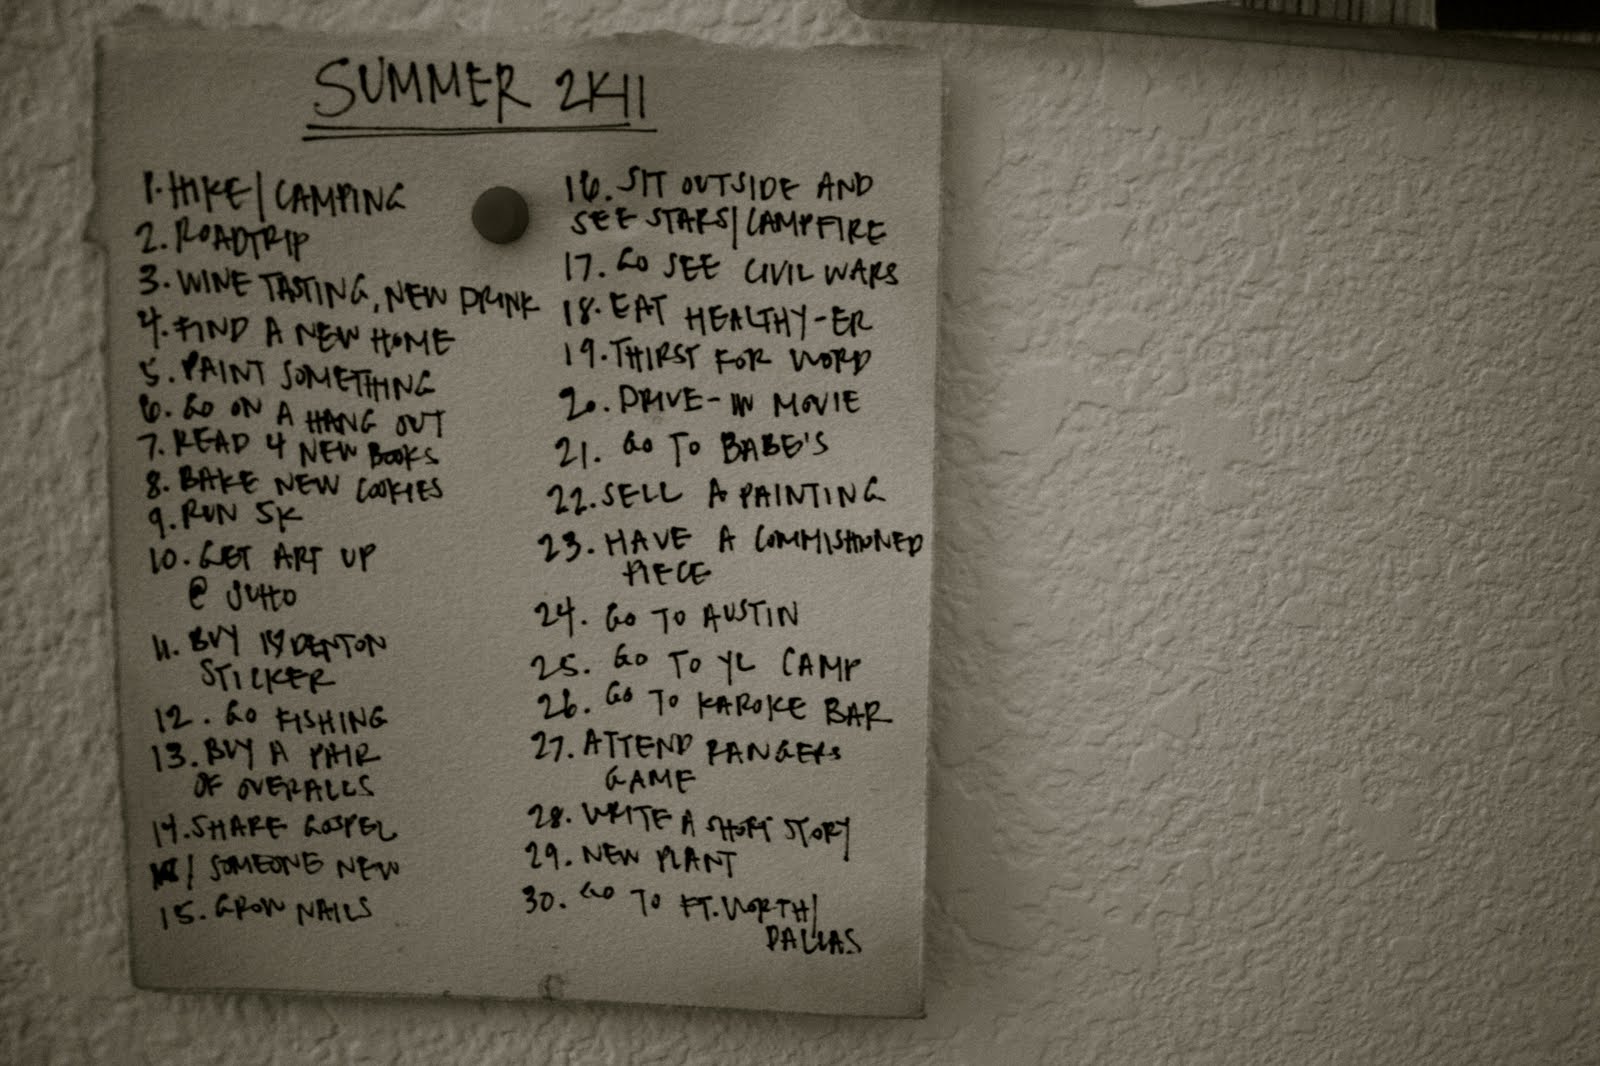 SUMMER 2K11
1. HIKE/CAMPING
2. ROADTRIP
3. WINE TASTING, NEW DRINK
4. FIND A NEW HOME
5. PAINT SOMETHING
6. GO ON A HANG OUT
7. READ 4 NEW BOOKS
8. BAKE NEW COOKIES
9. RUN 5K
10. GET ART UP
@
11. BUY DENTON
STICKER
12. GO FISHING
13. BUY A PAIR
OF OVERALLS
14. SHARE GOSPEL
W/ SOMEONE NEW
15. GROW NAILS
16. SIT OUTSIDE AND
SEE STARS/CAMPFIRE
17. GO SEE CIVIL WARS
18. EAT HEALTHY-ER
19. THIRST FOR WORD
20. DRIVE-IN MOVIE
21. GO TO BABE'S
22. SELL A PAINTING
23. HAVE A COMMISHIONED
PIECE
24. GO TO AUSTIN
25. GO TO YL CAMP
26. GO TO KAROKE BAR
27. ATTEND RANGERS
GAME
28. WRITE A SHORT STORY
29. NEW PLANT
30. GO TO FT. WORTH/
DALLAS